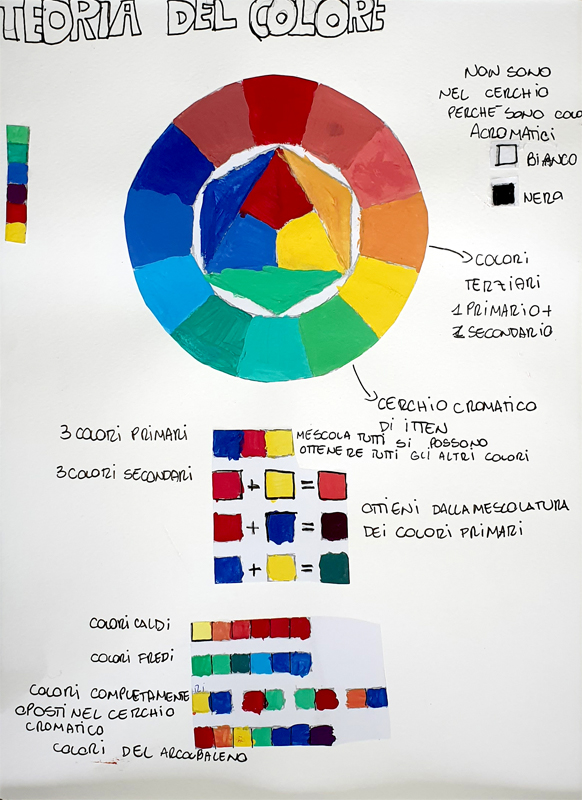 TEORIA DEL COLORE
NON SONO
NEL CERCHIO
PERCHÈ SONO COLO
ACROMATICI
BIANCO
NERA
COLORI
TERZIARI
1 PRIMARIO +
1 SECONDARIO
CERCHIO CROMATICO
DI ITTEN
3 COLORI PRIMARI
MESCOLA TUTTI SI POSSONO
OTTENERE TUTTI GLI ALTRI COLORI
3 COLORI SECONDARI
+ =
+ =
+ =
OTTIENI DALLA MESCOLATURA
DEI COLORI PRIMARI
COLORI CALDI
COLORI FREDI
COLORI COMPLETAMENTE
OPOSTI NEL CERCHIO
CROMATICO
COLORI DEL ARCOBALENO